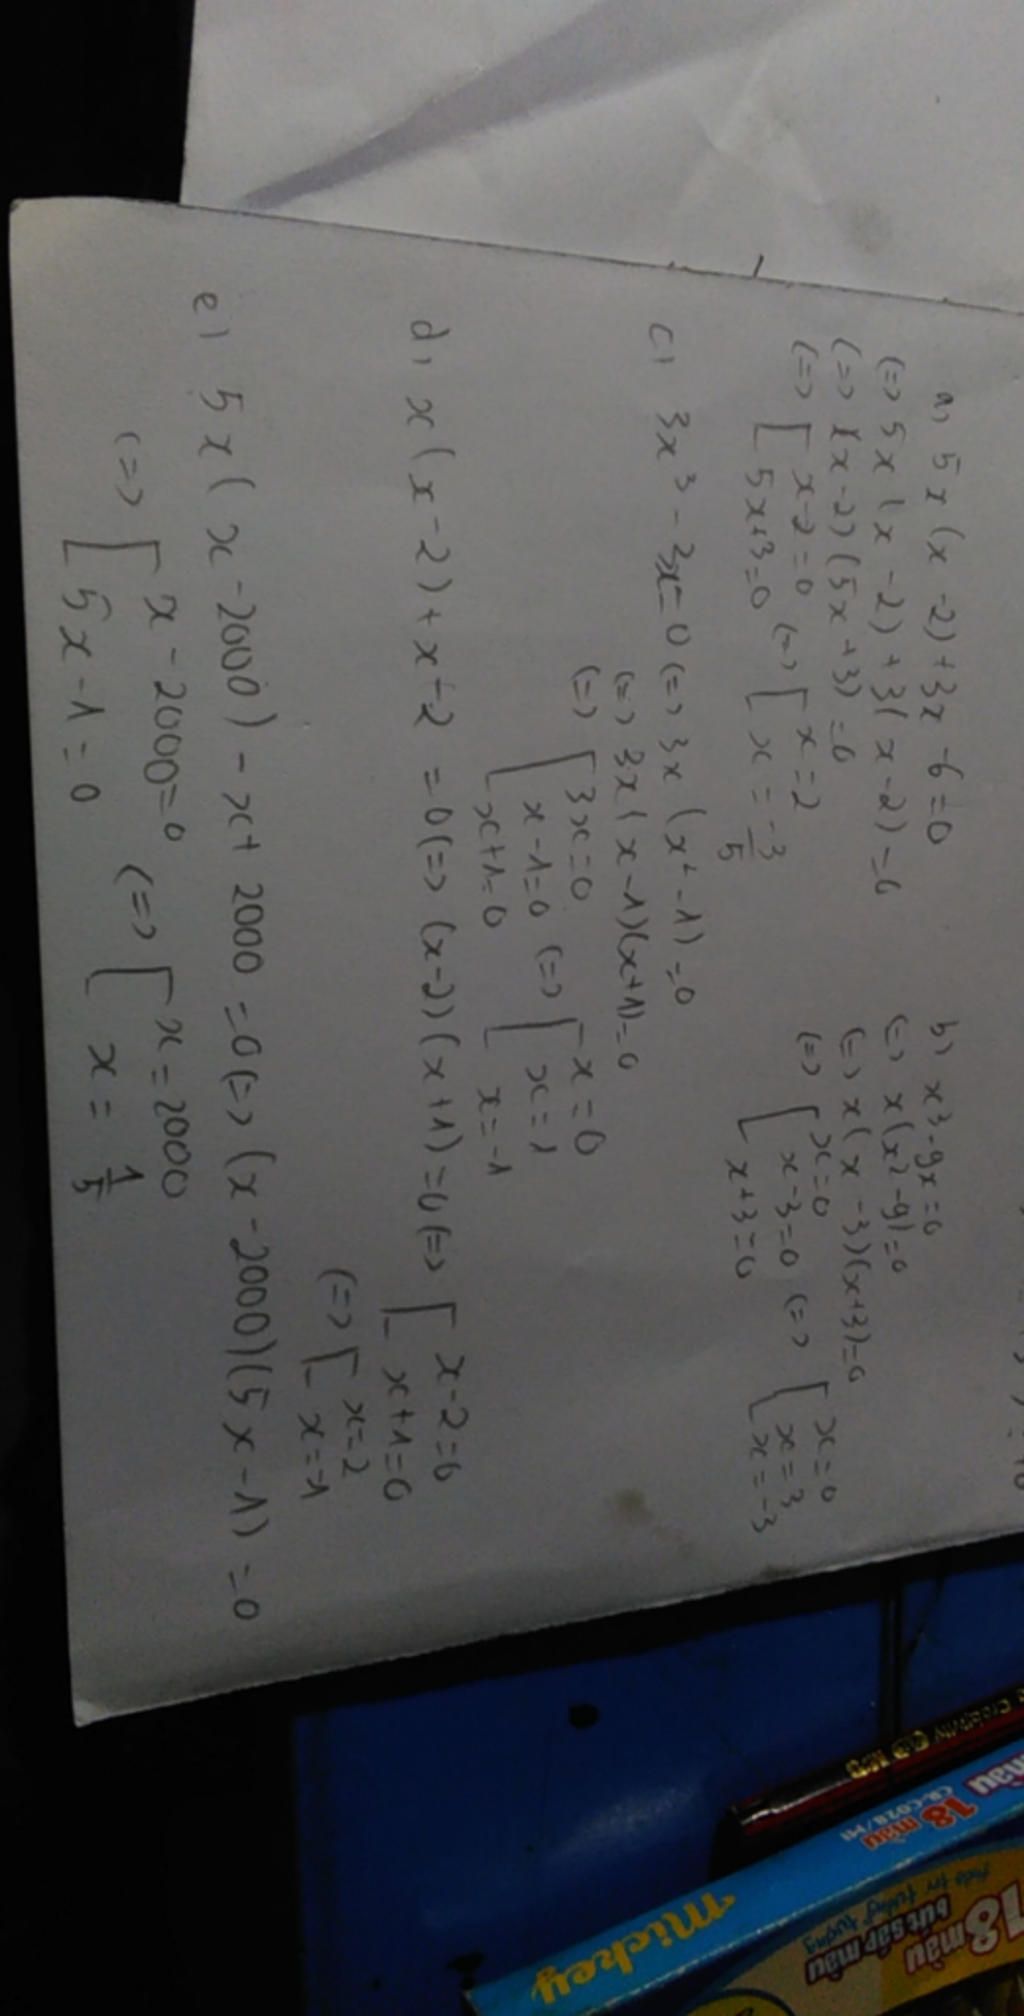 a, 5x(x-2)+3x-6=0
(=> 5x(x-2)+3(x-2)=0
(=> (x-2)(5x+3)=0
(=> [ x-2=0 (=> [ x=2
5x+3=0 x = -3/5
b) x³-9x=0
(=> x(x²-9)=0
(=> x(x-3)(x+3)=0
(=> [ x=0
x-3=0 (=> [ x=0
x+3=0 x=3
x=-3
c) 3x³-3x=0 (=> 3x(x²-1)=0
(=> 3x(x-1)(x+1)=0
(=> [ 3x=0
x-1=0 (=> [ x=0
x+1=0 x=1
x=-1
d, x(x-2)+x-2=0 (=> (x-2)(x+1)=0 (=> [ x-2=0
x+1=0
(=> [ x=2
x=-1
e) 5x(x-2000)-x+2000=0 (=> (x-2000)(5x-1)=0
(=> [ x-2000=0 (=> [ x=2000
5x-1=0 x = 1/5
mickey
18 màu
CR-C028/MI
18 màu
bút sáp màu